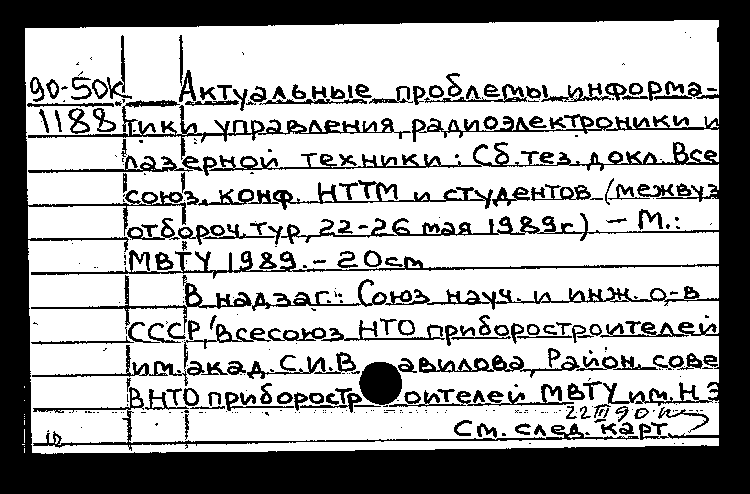 90-50К Актуальные проблемы информа-
1188 тики, управления, радиоэлектроники и
лазерной техники: Сб. тез. докл. Все
союз. конф. НТТМ и студентов (межвуз
отбороч. тур, 22-26 мая 1989г.) – М.:
МВТУ, 1989. – 20см
В надзаг.: Союз науч. и инж. о-в
СССР, Всесоюз НТО приборостроителей
им. акад. С.И.В авилова, Район. сове
ВНТО приборостр оителей МВТУ им. Н Э
22 III 90
См. след. карт.